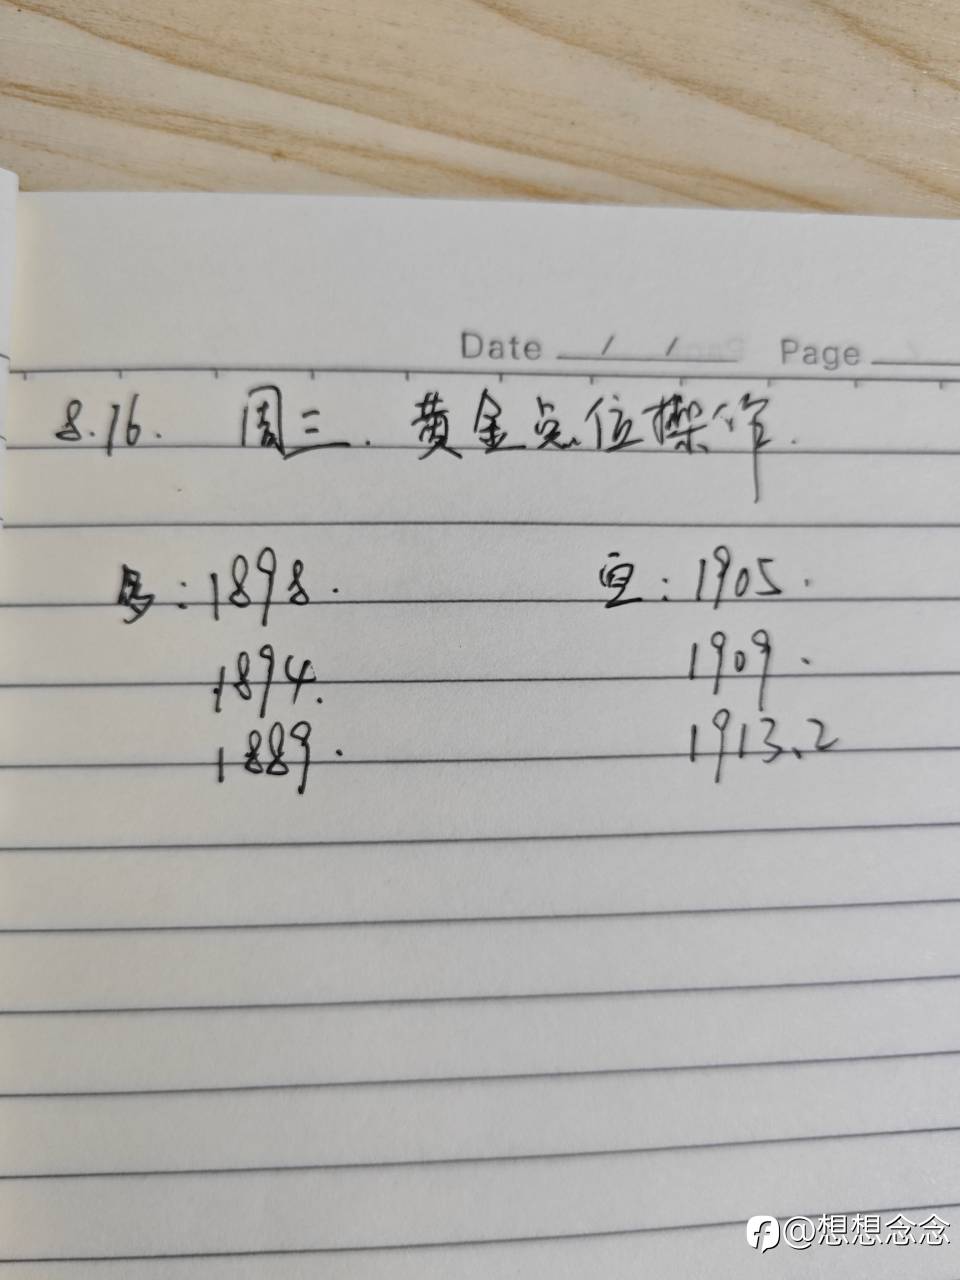 Date / / Page
8.16. 周三. 黄金点位操作.
多:1898. 空:1905.
1894. 1909.
1889. 1913.2
@想想念念